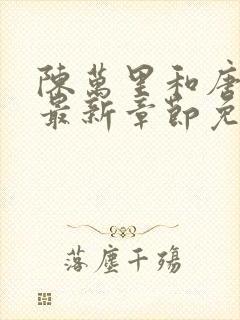 陳萬里和唐
最新章節免
落塵千殤